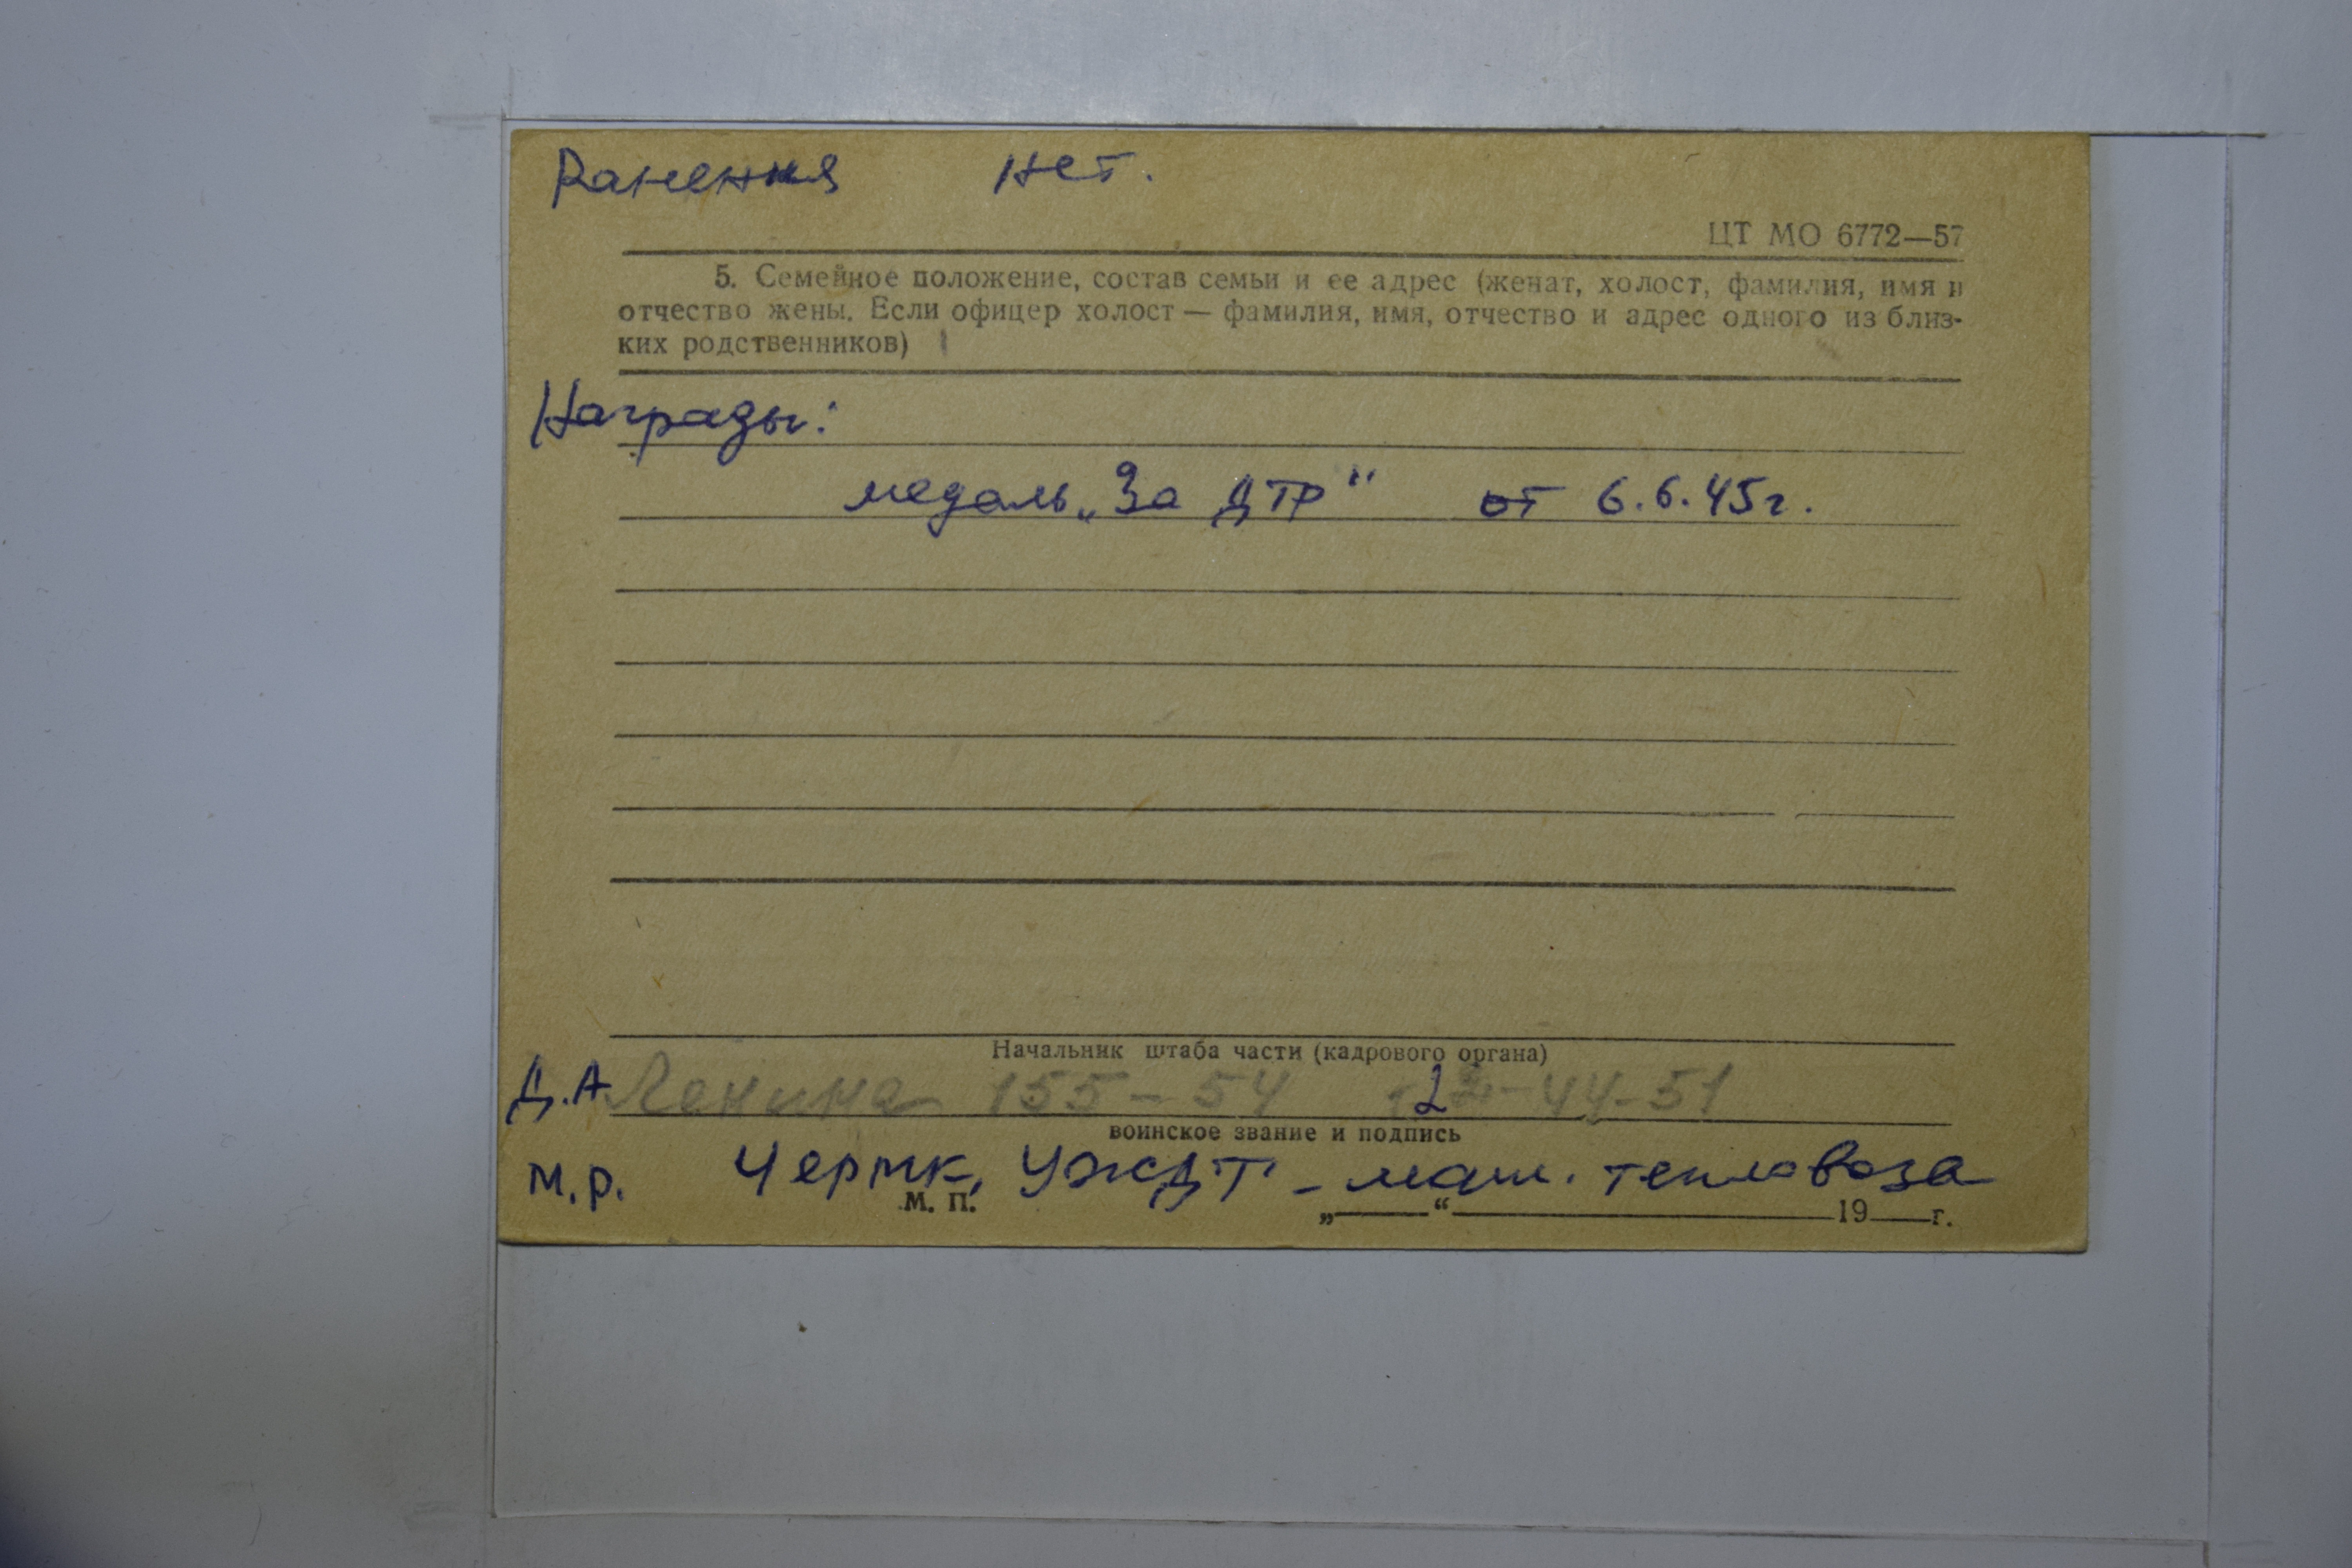 Ранения нет.
ЦТ МО 6772—57
5. Семейное положение, состав семьи и ее адрес (женат, холост, фамилия, имя и
отчество жены. Если офицер холост — фамилия, имя, отчество и адрес одного из близ-
ких родственников)
Награды:
медаль „За ДТР" от 6.6.45г.
Начальник штаба части (кадрового органа)
Д.А. Ленина 155-54 2-44-51
воинское звание и подпись
М.р. Чермк, УЖДТ - маш. тепловоза
М. П. „ “ 19 г.